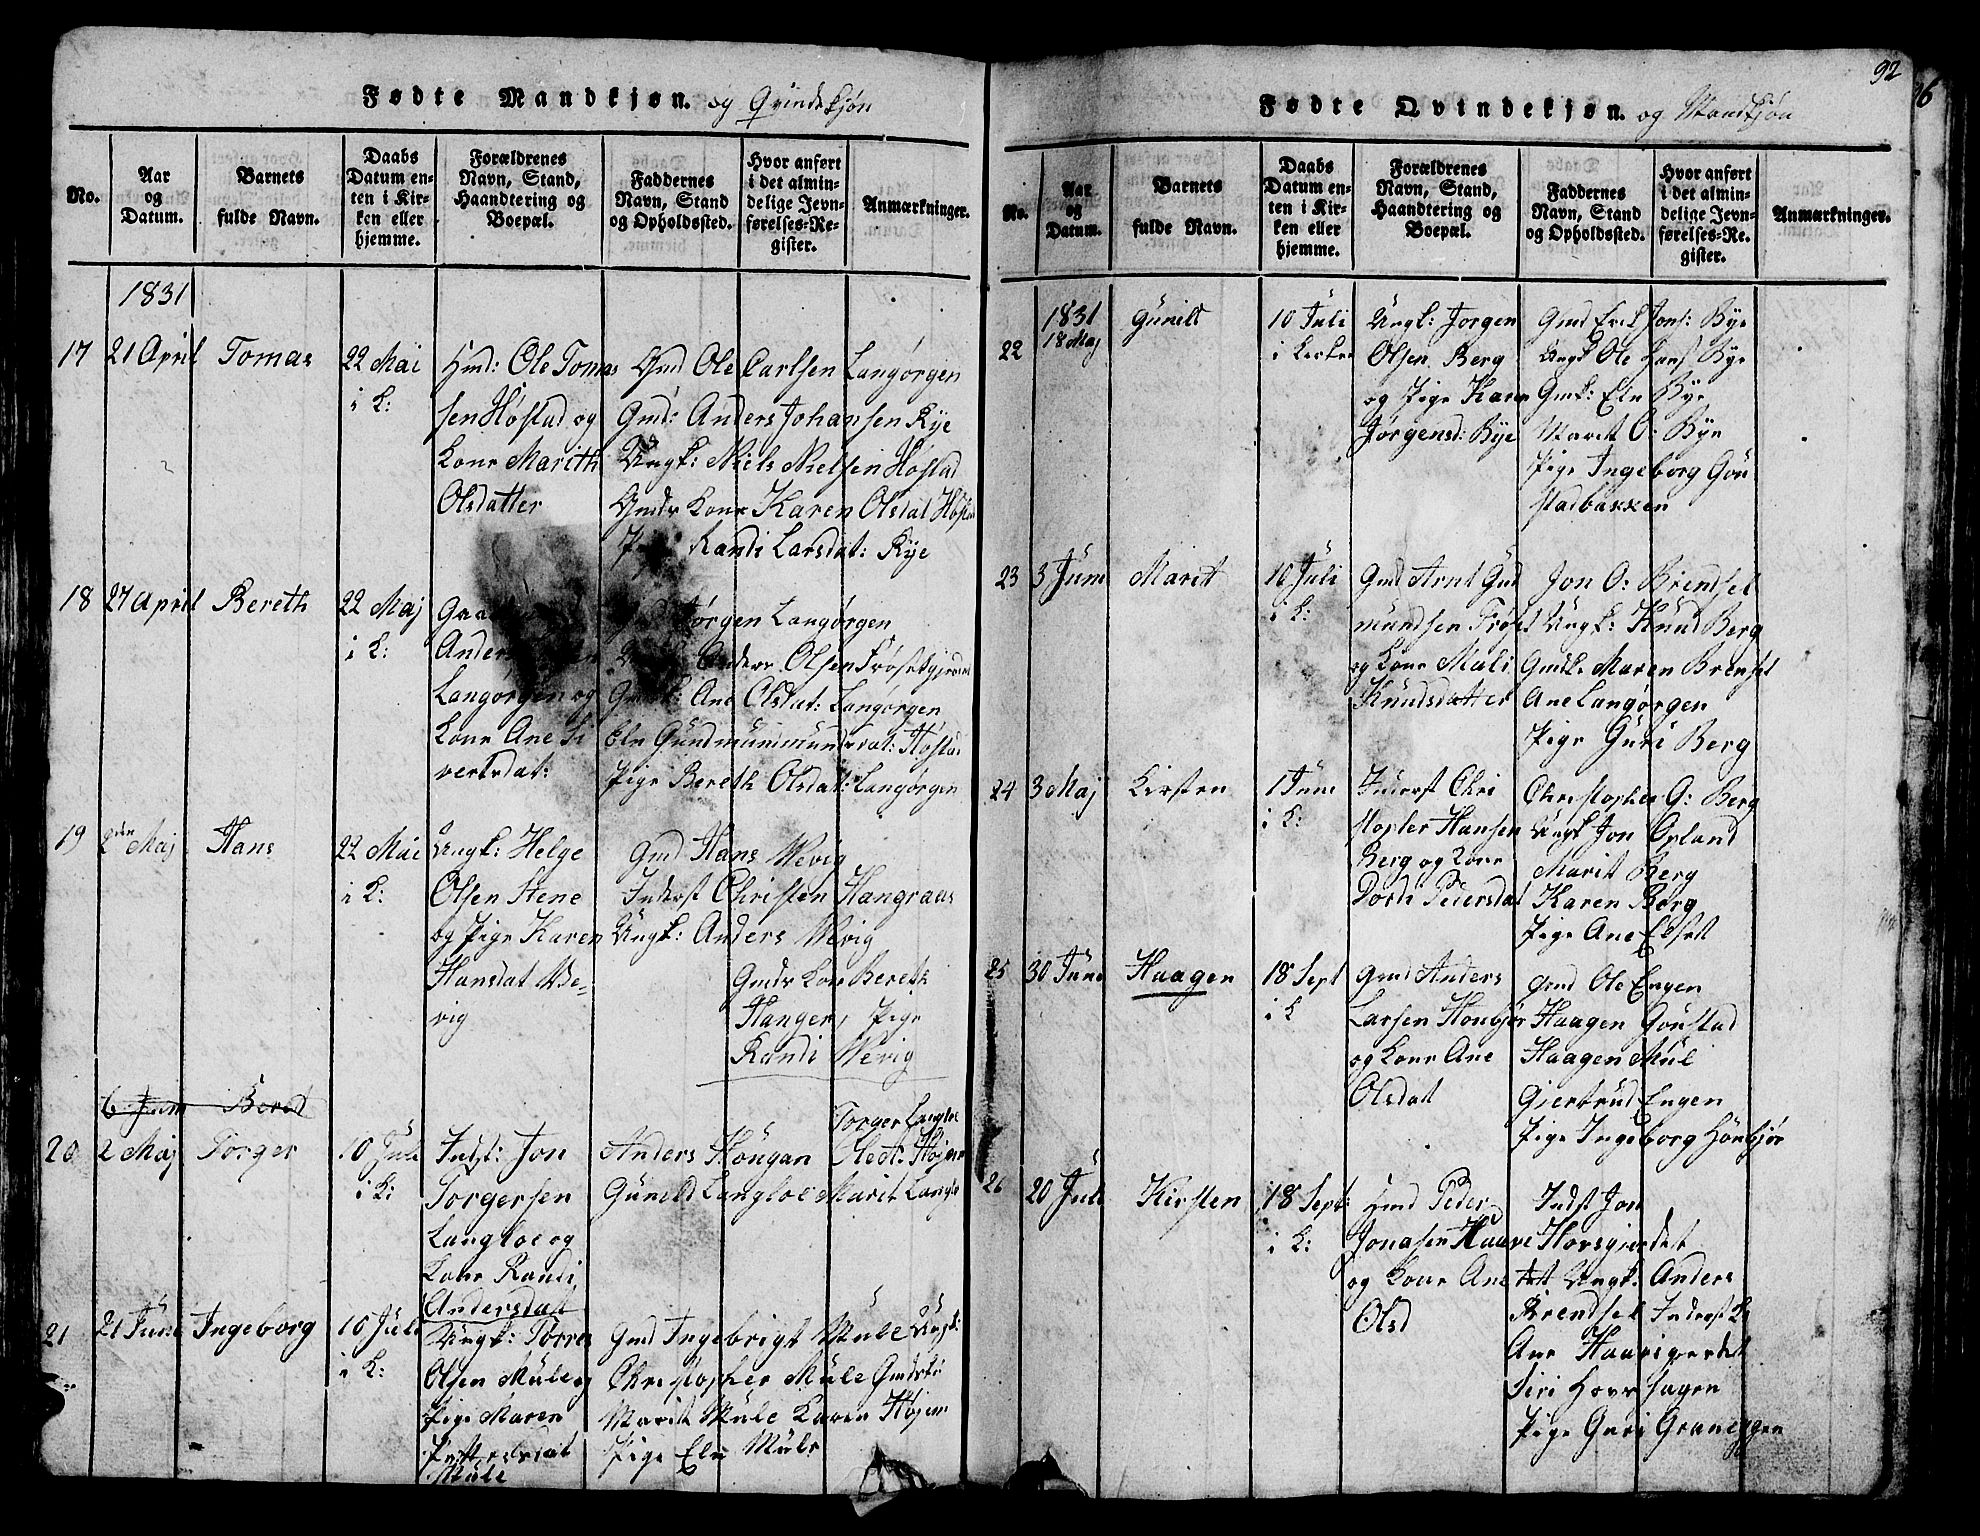 92
6
Fødte Mandkjøn. og Qvindekjøn
No.
Aar og Datum.
Barnets fulde Navn.
Daabs Datum enten i Kirken eller hjemme.
Forældrenes Navn, Stand, Haandtering og Boepæl.
Faddernes Navn, Stand og Opholdssted.
Hvor anført i det almindelige Jevnførelses-Register.
Anmærkninger.
1831
17 21 April Tomas 22 Mai i K:
Hmd: Ole Tomas
sen Høstad og
Kone Marith
Olsdatter
Gmd Ole Carlsen Langørgen
Gmd: Anders Johansen Kye
Ungk: Niels Nielsen Høstad
Gmds Kone Karen Olsdat Høstad
Randi Larsdat: Kye
18 27 April Bereth 22 Maj i K:
Anders
Langørgen og
Kone Ane Si
vertsdat:
Jørgen Langørgen
Olsen Frøsetgjerdet
Gmk: Ane Olsdat: Langørgen
Pige Bereth Olsdat: Langørgen
19 2den Maj Hans 22 Mai i K:
Ungk: Helge
Olsen Stene
og Pige Karen
Hansdat We-
vig
Gmd Hans Wevig
Inderst Christen Hangraas
Ungk: Anders Wevig
Gmds Kone Bereth
Hanger, Pige
Randi Wevig
6 Juni Bered
20 2 Maj Torger 10 Juli i K:
Indst: Jon
Torgersen
Langloe og
Kone Randi
Andersdat
Torger Langloe
Anders Skougan Ole A: Højem
Guneld Langloe Marit Langlo
21 21 June Ingeborg 10 Juli i K:
Ungk: Torres
Olsen Mule og
Pige Maren
Pettersdat
Mule
Gmd Ingebrigt Mule Ungk:
Christopher Mule Gmdsk:
Marit Mule Karen Højem
Pige Eln Mule
Fødte Qvindekjøn. og Mandkjøn
No.
Aar og Datum.
Barnets fulde Navn.
Daabs Datum enten i Kirken eller hjemme.
Forældrenes Navn, Stand, Haandtering og Boepæl.
Faddernes Navn, Stand og Opholdssted.
Hvor anført i det almindelige Jevnførelses-Register.
Anmærkninger.
1831
22 18 Maj Gunild 10 Juli i Kirke
Ungk: Jorgen
Olsen Berg
og Pige Karen
Jørgensd: Bye
Gmd Erik Jons: Bye
Ungk Ole Hans Bye
Gmk: Eln Bye
Marit O: Bye
Pige Ingeborg Gou
stadbakken
23 3 Juni Marit 10 Juli i K:
Gmd Arnt Gud
mundsen Frøset
og Kone Mali
Knudsdatter
Jon O: Brendsel
Ungk: Knud Berg
Gmdk: Maren Brensel
Ane Langørgen
Pige Guri Berg
24 3 Maj Kirsten 1 Juni i K:
Inderst Chri
stopher Hansen
Berg og Kone
Dorth Pedersdat
Christopher G: Berg
Ungk Jon Opland
Marit Berg
Karen Berg
Pige Ane Elsett
25 30 June Haagen 18 Sept i K
Gmd Anders
Larsen Hønbjør
og Kone Ane
Olsdat
Gmd Ole Engen
Haagen Goustad
Haagen Mul
Giertrud Engen
Pige Ingeborg Hønbjør
26 20 Juli Kirsten 18 Sept: i K:
Hmd Peder
Jonasen Haave
og Kone Ane
Olsd
Indst Jon
Horsgjerdet
Ungk: Anders
Brendsel Inderst K
Ane Haavigerdet
Siri Horrhagen
Pige Guri Graneggen